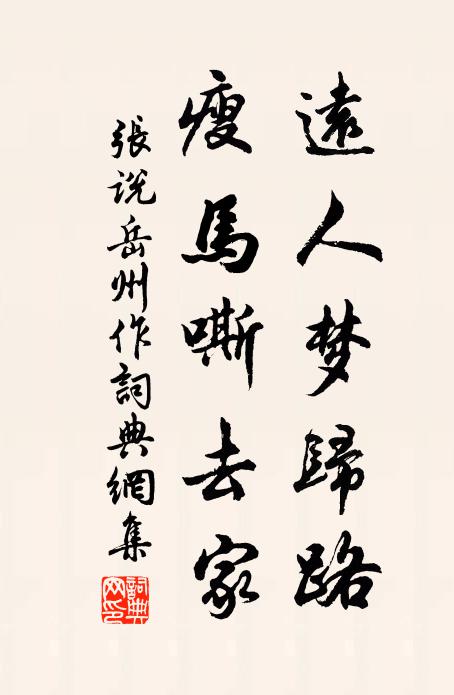 遠人梦歸路
瘦馬嘶去家
張说岳州作詞典網集
詞典网印